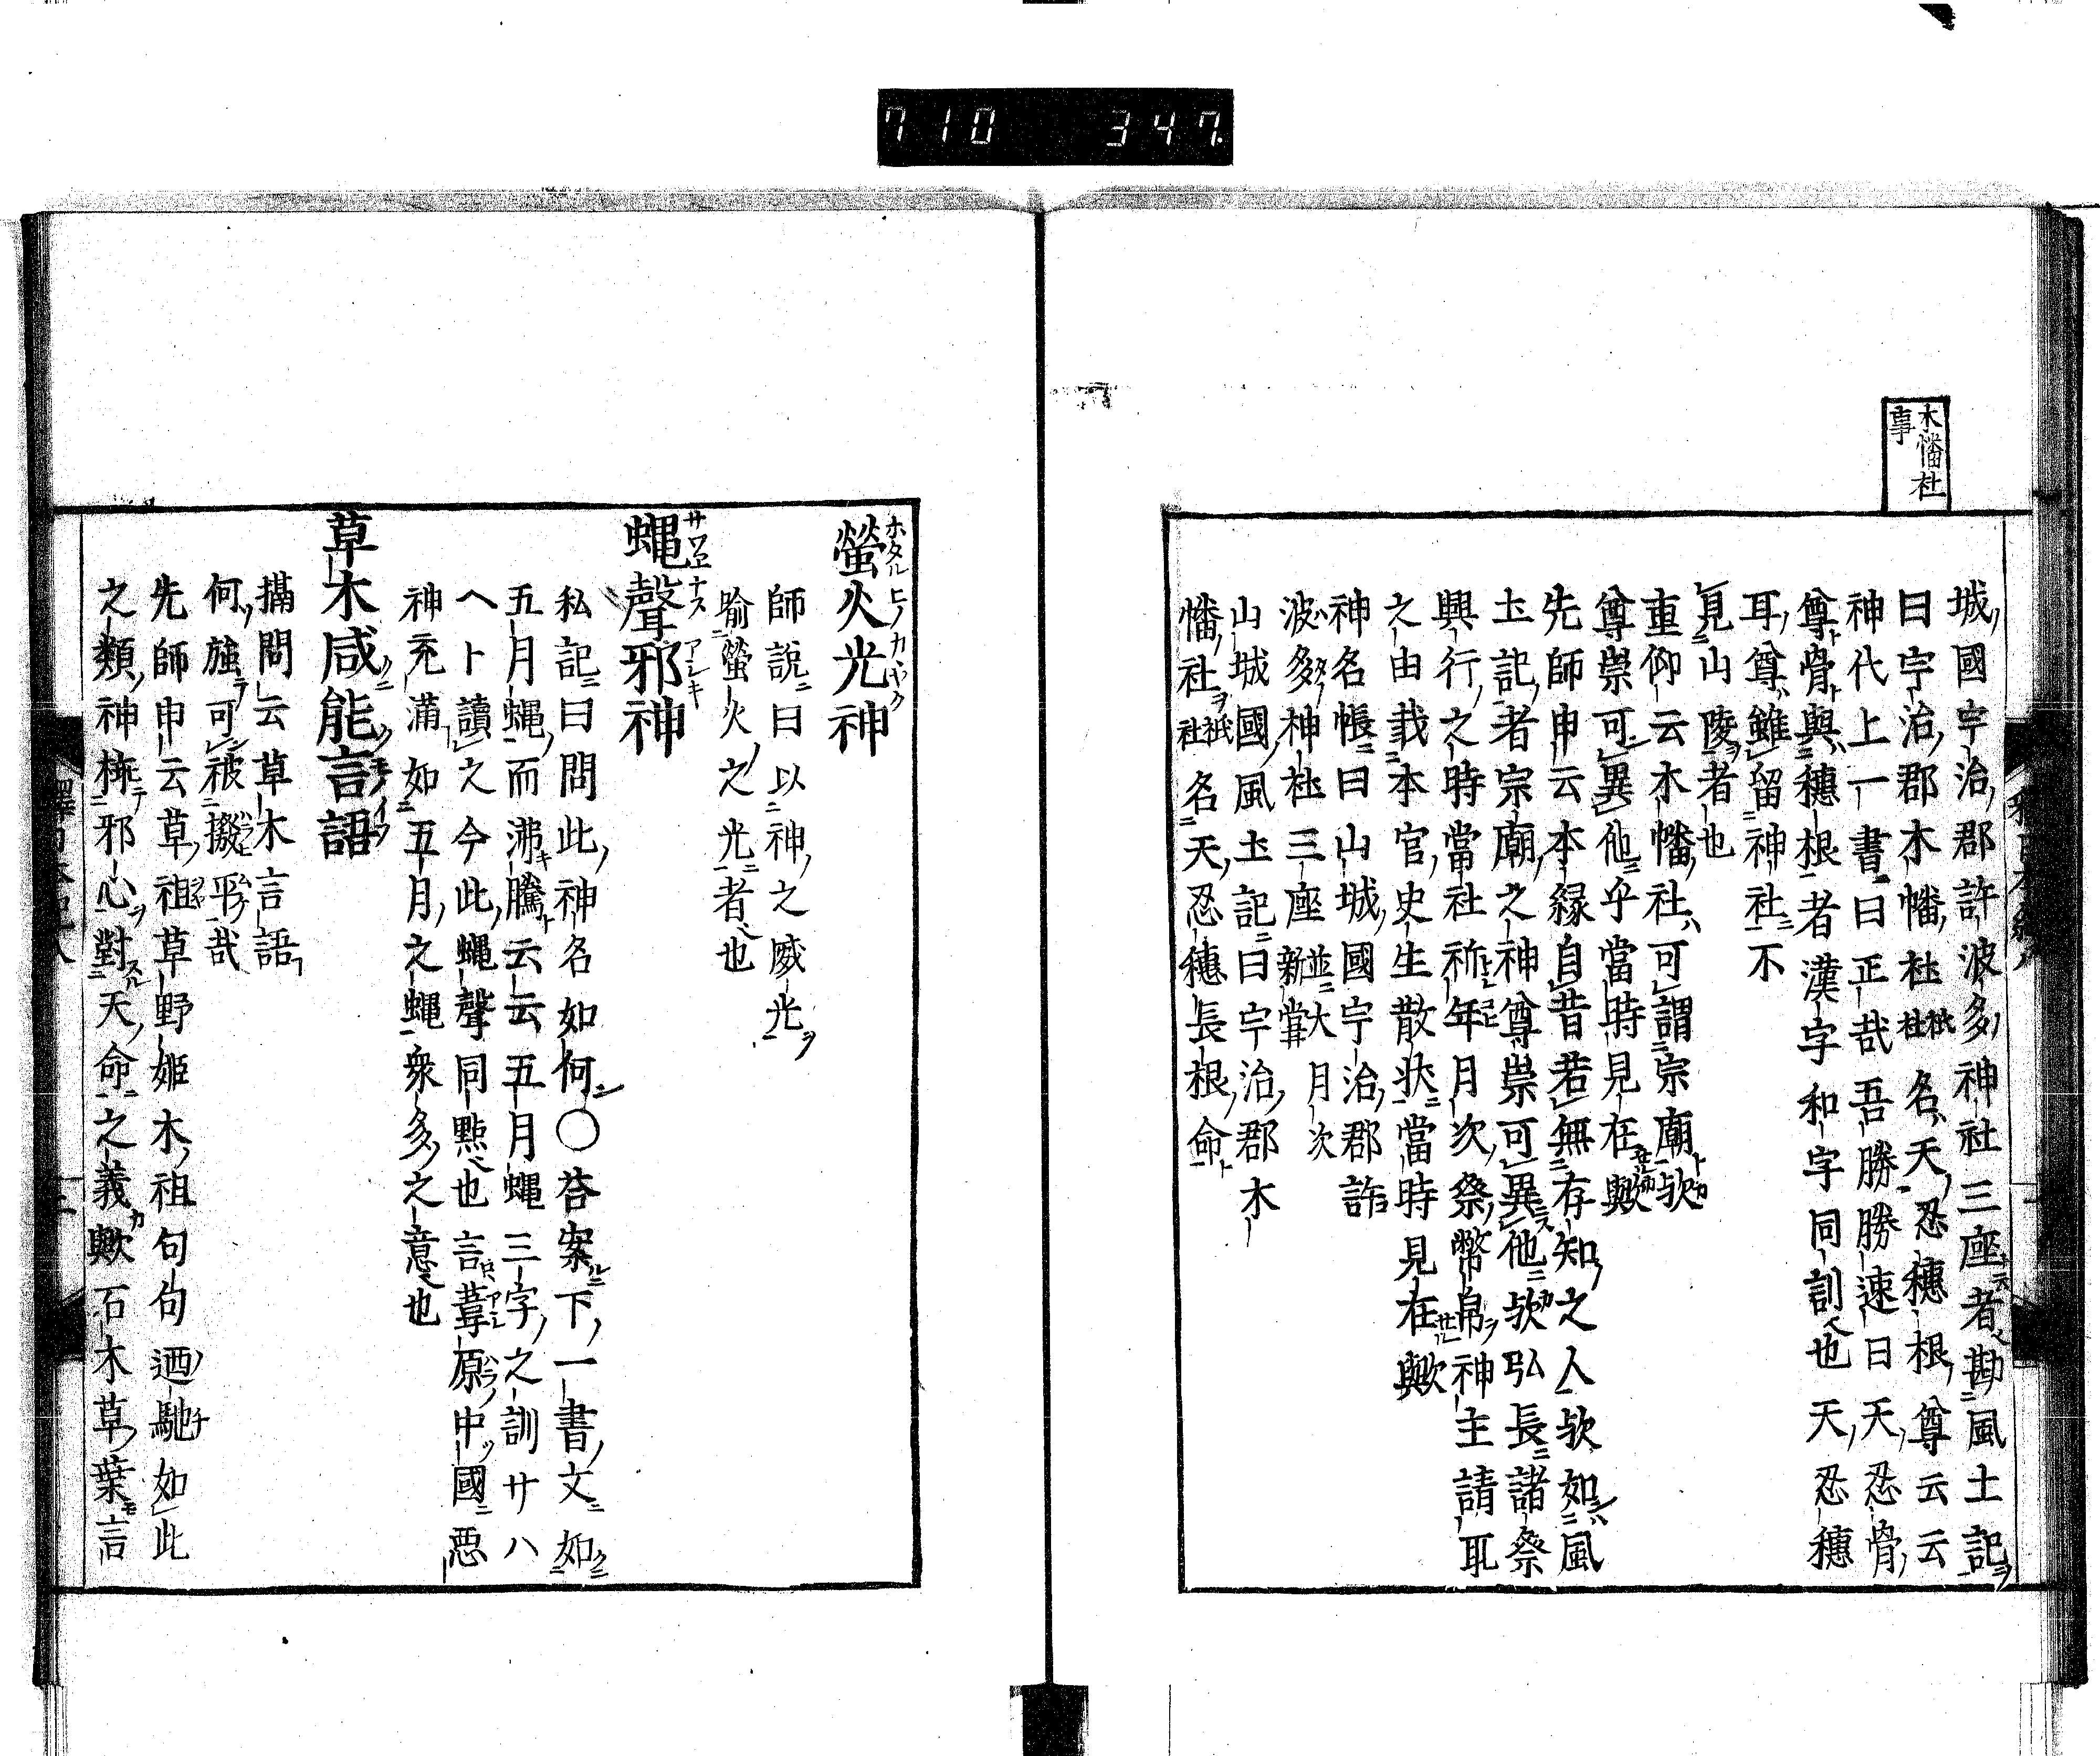 710 347
木幡社
事
城國宇治郡許波多神社三座者勘風土記
曰宇治郡木幡社祇社名天忍穗根尊云云
神代上一書曰正哉吾勝勝速日天忍骨
尊骨與穗根者漢字和字同訓也天忍穗
耳尊雖留神社不
見山陵者也
重仰云木幡社可謂宗廟欤
尊崇可異他乎當時見在歟
先師申云本緣自昔若無存知之人欤如風
土記者宗廟之神尊崇可異他欤弘長諸祭
興行之時當社祈年月次祭幣帛神主請取
之由載本官史生散狀當時見在歟
神名帳曰山城國宇治郡許
波多神社三座並大月次新嘗
山城國風土記曰宇治郡木
幡社祇社名天忍穗長根命
螢火光神
ホタルヒノカヽヤク
師說曰以神之威光
喻螢火之光者也
蠅聲邪神
サワヱナスアシキ
私記曰問此神名如何○荅案下一書文如
五月蠅而沸騰云云五月蠅三字之訓サハ
ヘト讀之今此蠅聲同㸃也言葦原中國惡
神充滿如五月之蠅衆多之意也
草木咸能言語
摛問云草木言語
何強可被撥平哉
先師申云草祖草野姬木祖句句迺馳如此
之類神施邪心對天命之義歟石木草葉言